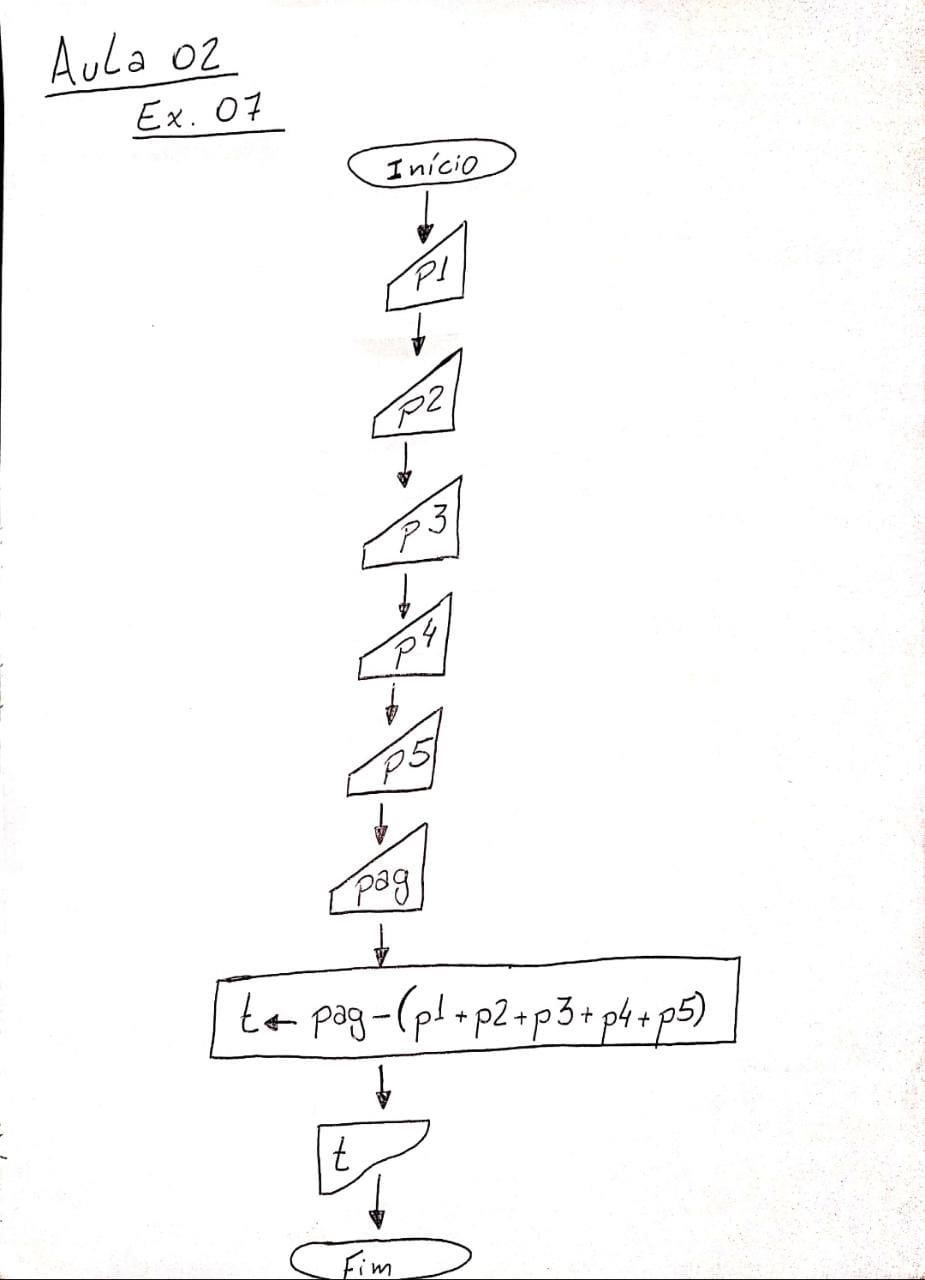 Aula 02
Ex. 07
Início
p1
p2
p3
p4
p5
pag
t ← pag - (p1 + p2 + p3 + p4 + p5)
t
Fim